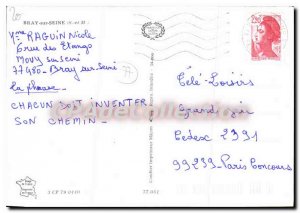 BRAY-sur-SEINE (S.-et-M.)
Mme RAGUIN Nicole
6 rue des Etangs
Mouy sur seine
77480 - Bray sur Seine
la phrase
CHACUN DOIT INVENTER
SON CHEMIN -
2,20
Télé-Loisirs
Cedex 2391
99233 - Paris Concours
77 051